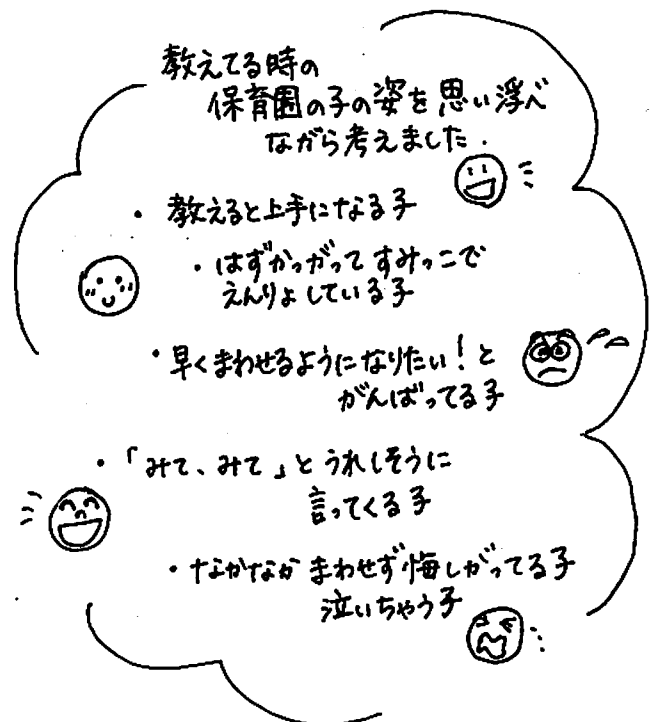 教えてる時の
保育園の子の姿を思い浮べ
ながら考えました.
・教えると上手になる子
・はずかっがって すみっこで
えんりょしている子
・早くまわせるようになりたい!と
がんばってる子
・「みて、みて」とうれしそうに
言ってくる子
・なかなか まわせず悔しがってる子
泣いちゃう子